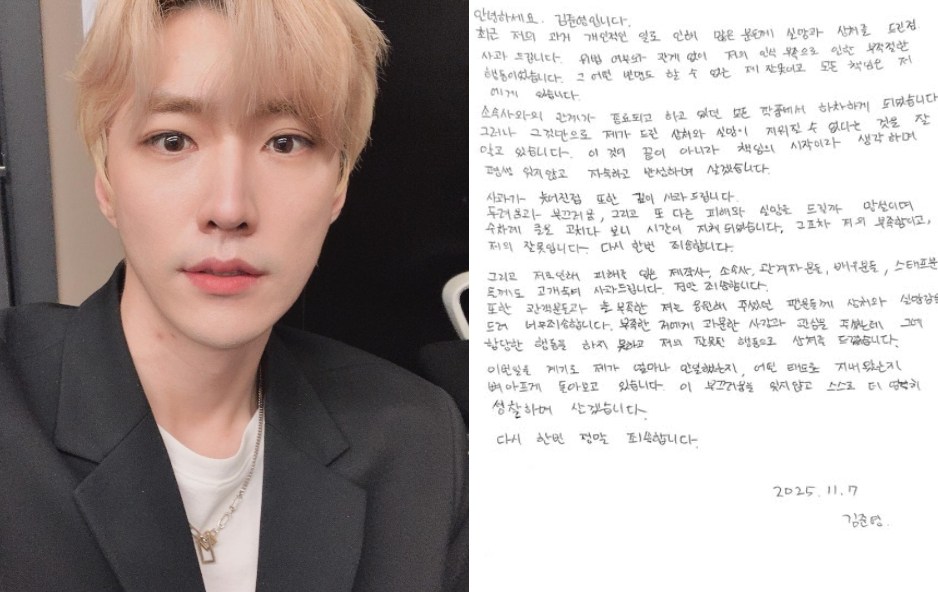 안녕하세요. 김준영입니다.
최근 저의 과거 개인적인 일로 인해 많은 분들께 실망과 상처를 드린점
사과 드립니다. 위법 여부와 관계 없이 저의 인식 부족으로 인한 부적절한
행동이었습니다. 그 어떤 변명도 할 수 없는 제 잘못이고 모든 책임은 저
에게 있습니다.
소속사와의 관계가 종료되고 하고 있던 모든 작품에서 하차하게 되었습니다
그러나 그것만으로 제가 드린 상처와 실망이 지워질 수 없다는 것을 잘
알고 있습니다. 이 것이 끝이 아니라 책임의 시작이라 생각하며
평생 잊지않고 자숙하고 반성하며 살겠습니다.
사과가 늦어진점 또한 깊이 사과드립니다.
두려움과 부끄러움, 그리고 또 다른 피해와 실망을 드릴까 망설이며
수차례 글을 고치다 보니 시간이 지체 되었습니다. 그조차 저의 부족함이고,
저의 잘못입니다. 다시 한번 죄송합니다.
그리고 저로인해 피해를 입은 제작사, 소속사, 관계자분들, 배우분들, 스태프분
들께도 고개숙여 사과드립니다. 정말 죄송합니다.
또한 관객분들과 부족한 저를 응원해 주셨던 팬분들께 상처와 실망감을
드려 너무죄송합니다. 부족한 저에게 과분한 사랑과 관심을 주셨는데 그에
합당한 행동을 하지 못하고 저의 잘못된 행동으로 상처를 드렸습니다.
이번일을 계기로 제가 얼마나 안일했는지, 어떤 태도로 지내왔는지
뼈아프게 돌아보고 있습니다. 이 부끄러움을 잊지않고 스스로 더 엄격히
성찰하며 살겠습니다.
다시 한번 정말 죄송합니다.
2025.11.7
김준영.